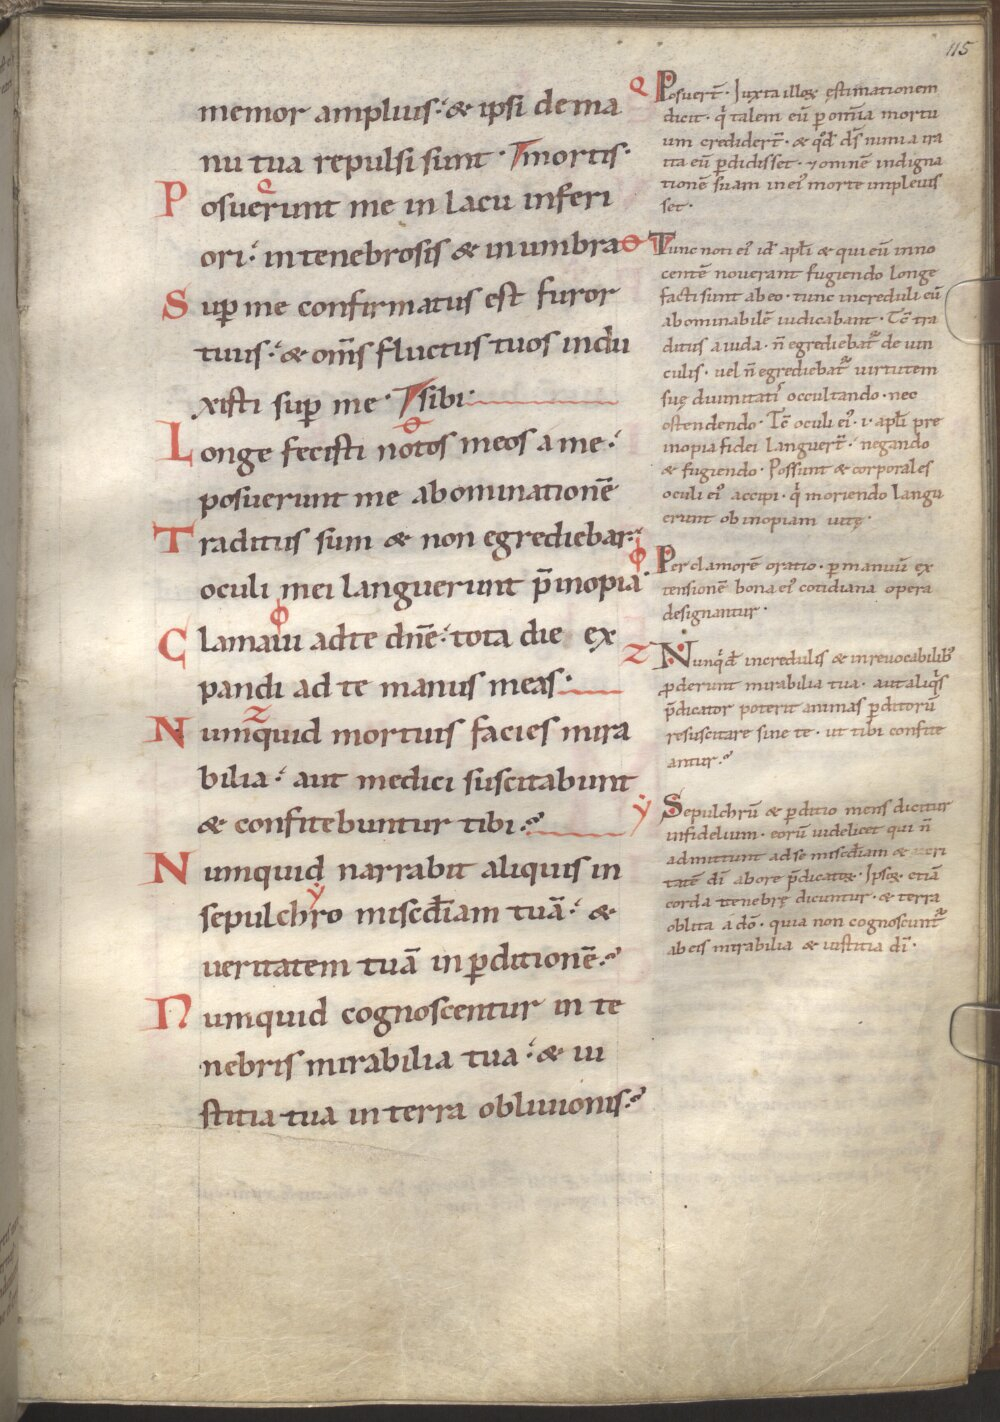 115
memor amplius· & ipsi dema
nu tua repulsi sunt · mortis·
Posuerunt me in lacu inferi
ori· intenebrosis & inumbra
Sup̄ me confirmatus est furor
tuus· & om̄s fluctus tuos indu
xisti sup̄ me · sibi·
Longe fecisti notos meos ame·
posuerunt me abominationē
Traditus sum & non egrediebar·
oculi mei languerunt p̄inopia·
Clamaui adte dn̄e· tota die ex
pandi ad te manus meas·
Numquid mortuis facies mira
bilia· aut medici suscitabunt
& confitebuntur tibi·
Numquid narrabit aliquis in
sepulchro misc̄diam tuā· &
ueritatem tuā inp̄ditionē·
Numquid cognoscentur in te
nebris mirabilia tua· & iu
stitia tua interra obliuionis·
Q Posuer̄t· Juxta illoꝝ ęstimationem
dicit· q̓ talem eū p̄ om̄ia mortu
um credider̄t· & qd̄ d̄s nimia ira
ita eū p̄didisset· ⁊ omnē indigna
tionē suam inei᾽ morte impleuis
set·
Θ Tunc noti ei᾽ id ̄ ap̄li & qui eū inno
centē nouerant fugiendo longe
facti sunt abeo· tunc increduli eū
abominabilē iudicabant· Tc̄ tra
ditus aiuda· n̄ egrediebat᷑ de uin
culis· uel n̄ egrediebat᷑ uirtutem
suę diuinitati᾽ occultando· nec
ostendendo· Tc̄ oculi ei᾽· i· ap̄li pre
inopia fidei languer̄t· negando
& fugiendo· Possunt & corporales
oculi ei᾽ accipi· q̓ moriendo langu
erunt ob inopiam uitę·
Φ Per clamorē oratio· p̄ manuū ex
tensionē bona ei᾽ cotidiana opera
designantur·
Z Nunq̓d incredulis & inreuocabilib᾽
p̱derunt mirabilia tua· aut aliq̓s
p̄dicator poterit animas p̄ditorū
resuscitare sine te· ut tibi confite
antur·
Y Sepulchrū & p̄ditio mens dicitur
infidelium· eorū uidelicet qui n̄
admittunt adse misc̄diam & ueri
tatē d̄i abore p̄dicatiꝝ· Ipsoꝝ etiā
corda tenebrę dicuntur· & terra
oblita a dō· quia non cognoscunt᷑
abeis mirabilia & iustitia d̄i·